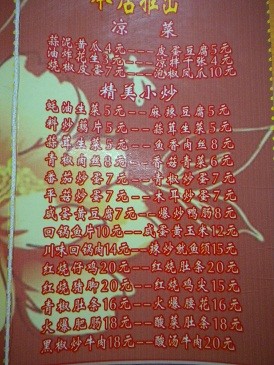 本店推出
凉 菜
蒜泥黄瓜4元---皮蛋豆腐5元
油炸花生5元---凉拌千张4元
烧椒皮蛋7元---泡椒凤爪10元
精美小炒
蚝油生菜5元--麻辣豆腐5元
料炒鹅片5元--蒜茸生菜5元
蒜茸青菜5元--鱼香肉丝8元
青椒肉丝8元--香菇青菜6元
番茄炒蛋7元--青椒炒蛋7元
平菇炒蛋7元--木耳炒蛋7元
咸蛋黄豆腐7元--爆炒鸭肠8元
回锅鱼片10元--咸蛋黄玉米12元
川味回锅肉14元--辣炒鱿鱼须15元
红烧仔鸡20元--红烧肚条20元
红烧猪脚20元--红烧鸡尖15元
青椒肚条20元--火爆腰花16元
火爆肥肠18元--酸菜肚条18元
黑椒炒牛肉18元--酸汤牛肉20元